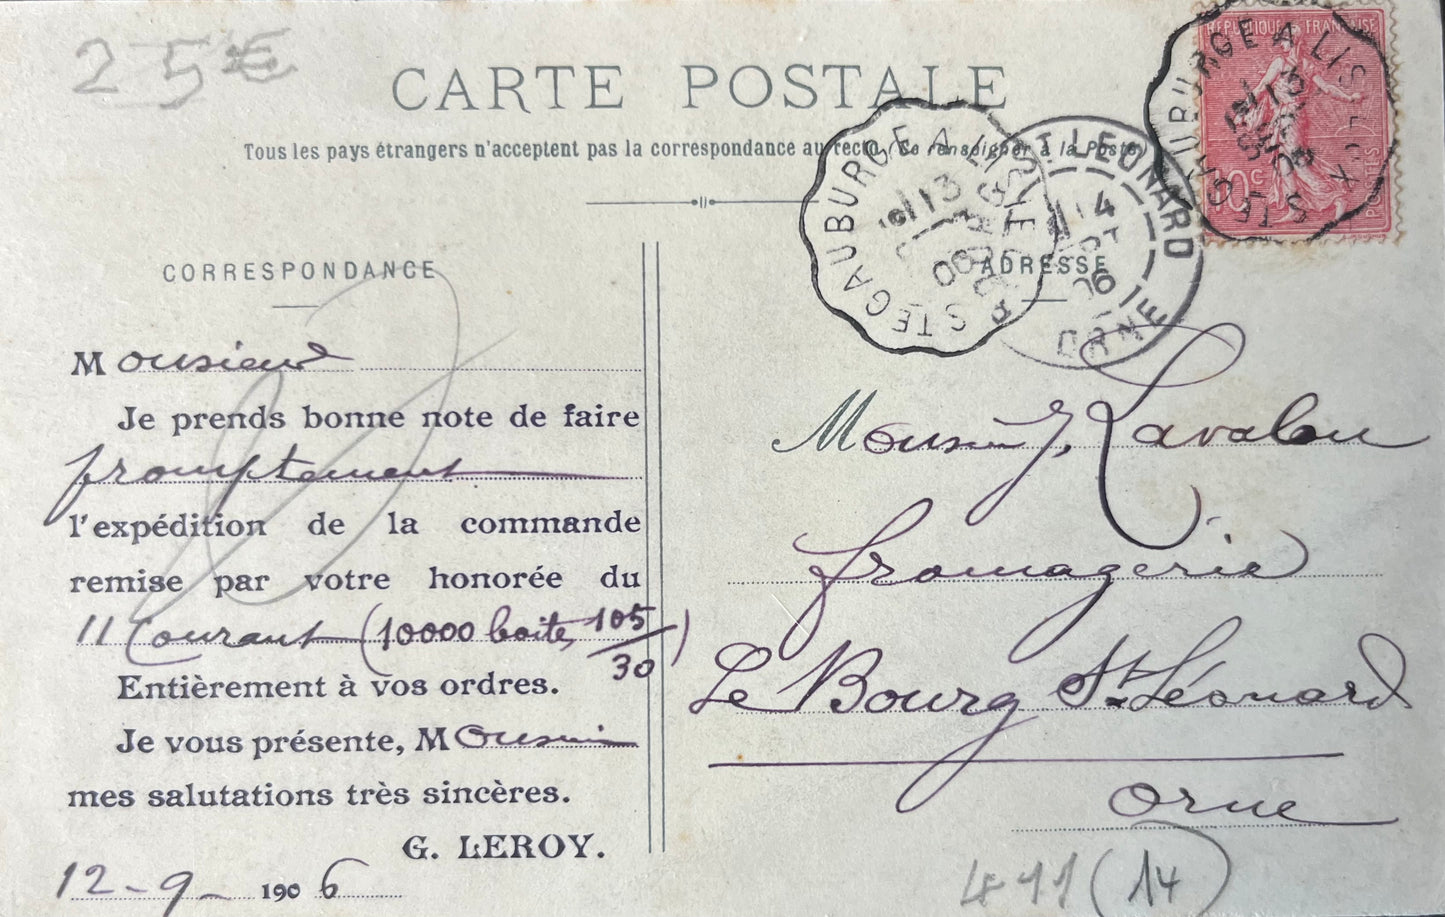 25€
CARTE POSTALE
Tous les pays étrangers n'acceptent pas la correspondance au recto (Se renseigner à la Poste)
REPUBLIQUE FRANÇAISE
10c
POSTES
STE GAUBURGE A LISIEUX
13
06
STE GAUBURGE A LISIEUX
13
06
LE BOURG ST LEONARD
14
06
ORNE
CORRESPONDANCE
Monsieur
Je prends bonne note de faire
promptement
l'expédition de la commande
remise par votre honorée du
11 Courant (10000 boites 105/30)
Entièrement à vos ordres.
Je vous présente, Monsieur
mes salutations très sincères.
G. LEROY.
12-9-1906
ADRESSE
Monsieur J. Lavalou
fromagerie
Le Bourg St Léonard
Orne
(14)